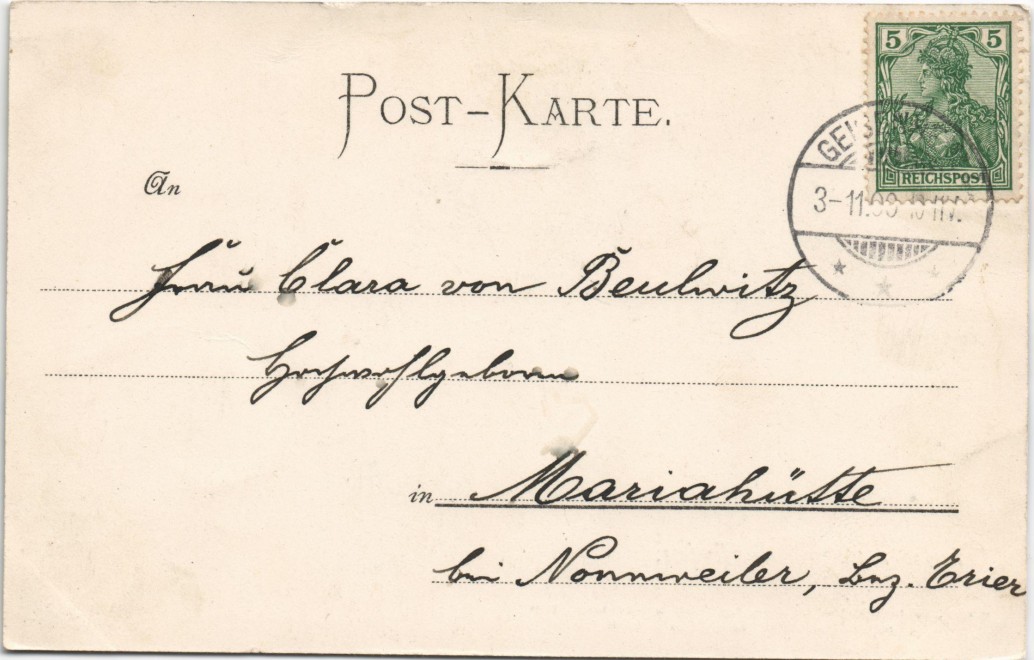 5 5
POST-KARTE.
REICHSPOST
An
3-11.
Frau Clara von Beulwitz
Hochwohlgeboren
in Mariahütte
bei Nonnweiler, Bez. Trier